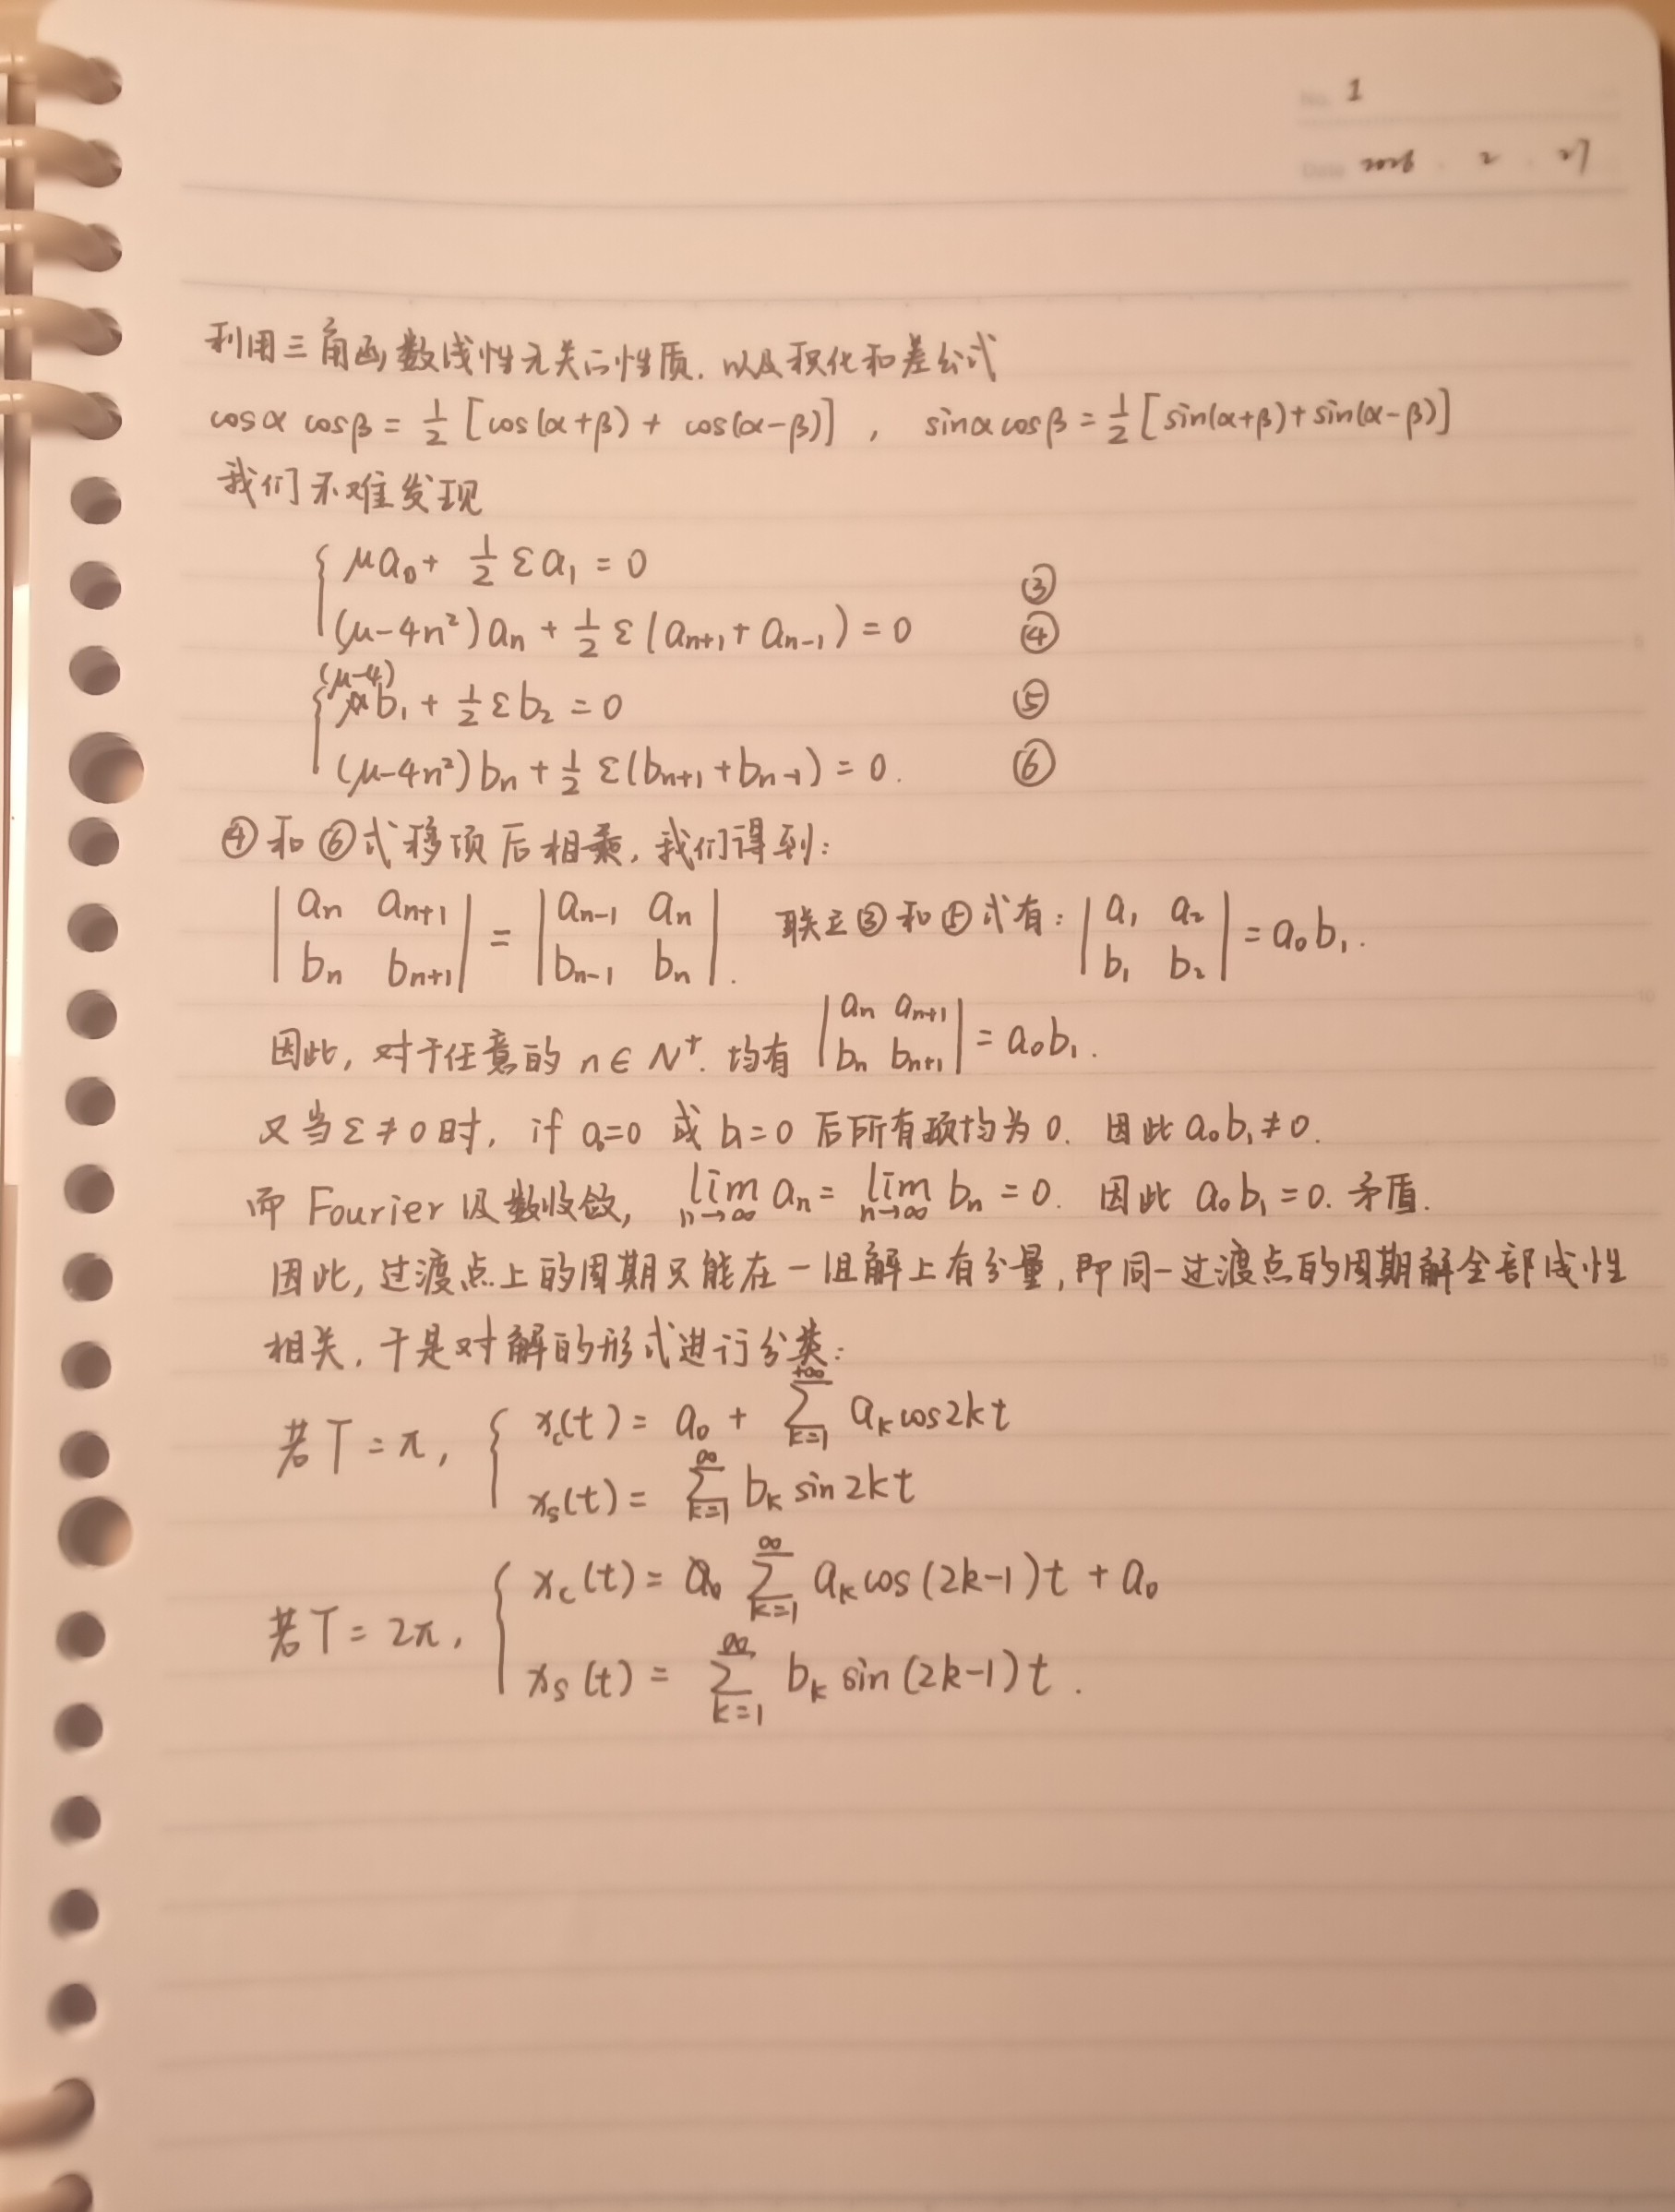 No. 1
Date 2026 . 2 . 27
利用三角函数线性无关的性质. 以及积化和差公式
cosα cosβ = 1/2 [cos(α+β) + cos(α-β)] , sinα cosβ = 1/2 [sin(α+β) + sin(α-β)]
我们不难发现
{ μa₀ + 1/2 εa₁ = 0 ③
(μ-4n²)aₙ + 1/2 ε(aₙ₊₁ + aₙ₋₁) = 0 ④
{ (μ-4) b₁ + 1/2 εb₂ = 0 ⑤
(μ-4n²)bₙ + 1/2 ε(bₙ₊₁ + bₙ₋₁) = 0. ⑥
④和⑥式移项后相乘, 我们得到:
| aₙ aₙ₊₁ ; bₙ bₙ₊₁ | = | aₙ₋₁ aₙ ; bₙ₋₁ bₙ |. 联立③和⑤式有: | a₁ a₂ ; b₁ b₂ | = a₀b₁.
因此, 对于任意的 n∈N⁺. 均有 | aₙ aₙ₊₁ ; bₙ bₙ₊₁ | = a₀b₁.
又当ε≠0时, if a₀=0 或 b₁=0 后所有项均为0. 因此 a₀b₁≠0.
而 Fourier 级数收敛, lim n→∞ aₙ = lim n→∞ bₙ = 0. 因此 a₀b₁=0. 矛盾.
因此, 过渡点上的周期只能在一组解上有分量, 即同一过渡点的周期解全部线性
相关, 于是对解的形式进行分类:
若T=π, { x_c(t) = a₀ + ∑_{k=1}^{+∞} aₖ cos2kt
x_s(t) = ∑_{k=1}^{∞} bₖ sin2kt
若T=2π, { x_c(t) = ∑_{k=1}^{∞} aₖ cos(2k-1)t + a₀
x_s(t) = ∑_{k=1}^{∞} bₖ sin(2k-1)t .